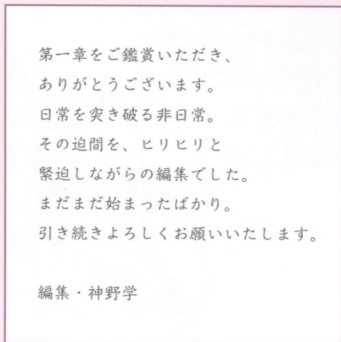 第一章をご鑑賞いただき、
ありがとうございます。
日常を突き破る非日常。
その迫間を、ヒリヒリと
緊迫しながらの編集でした。
まだまだ始まったばかり。
引き続きよろしくお願いいたします。
編集・神野学